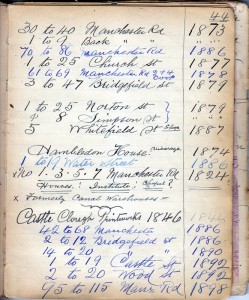 44
30 to 40 Manchester Rd 1873
1 to 9 Back " " 1877
70 to 86 Manchester Rd 1886
1 to 25 Church St 1877
61 to 69 Manchester Rd 1878
3 to 47 Bridgefield St 1879
1 to 25 Norton St 1879
" 8 Simpson St
5 Whitefield St 1887
Hambledon House 1874
1 to 19 Water Street 1886
1. 3. 5. 7 Manchester Rd 1824
House: Institute:
x Formerly Canal Warehouses
Castle Clough Printworks 1846
42 to 68 Manchester 1886
2 to 12 Bridgefield St 1886
14 to 20 " " 1890
1 to 19 Castle St 1890
2 to 20 Wood St 1892
95 to 115 Manr Rd 1898